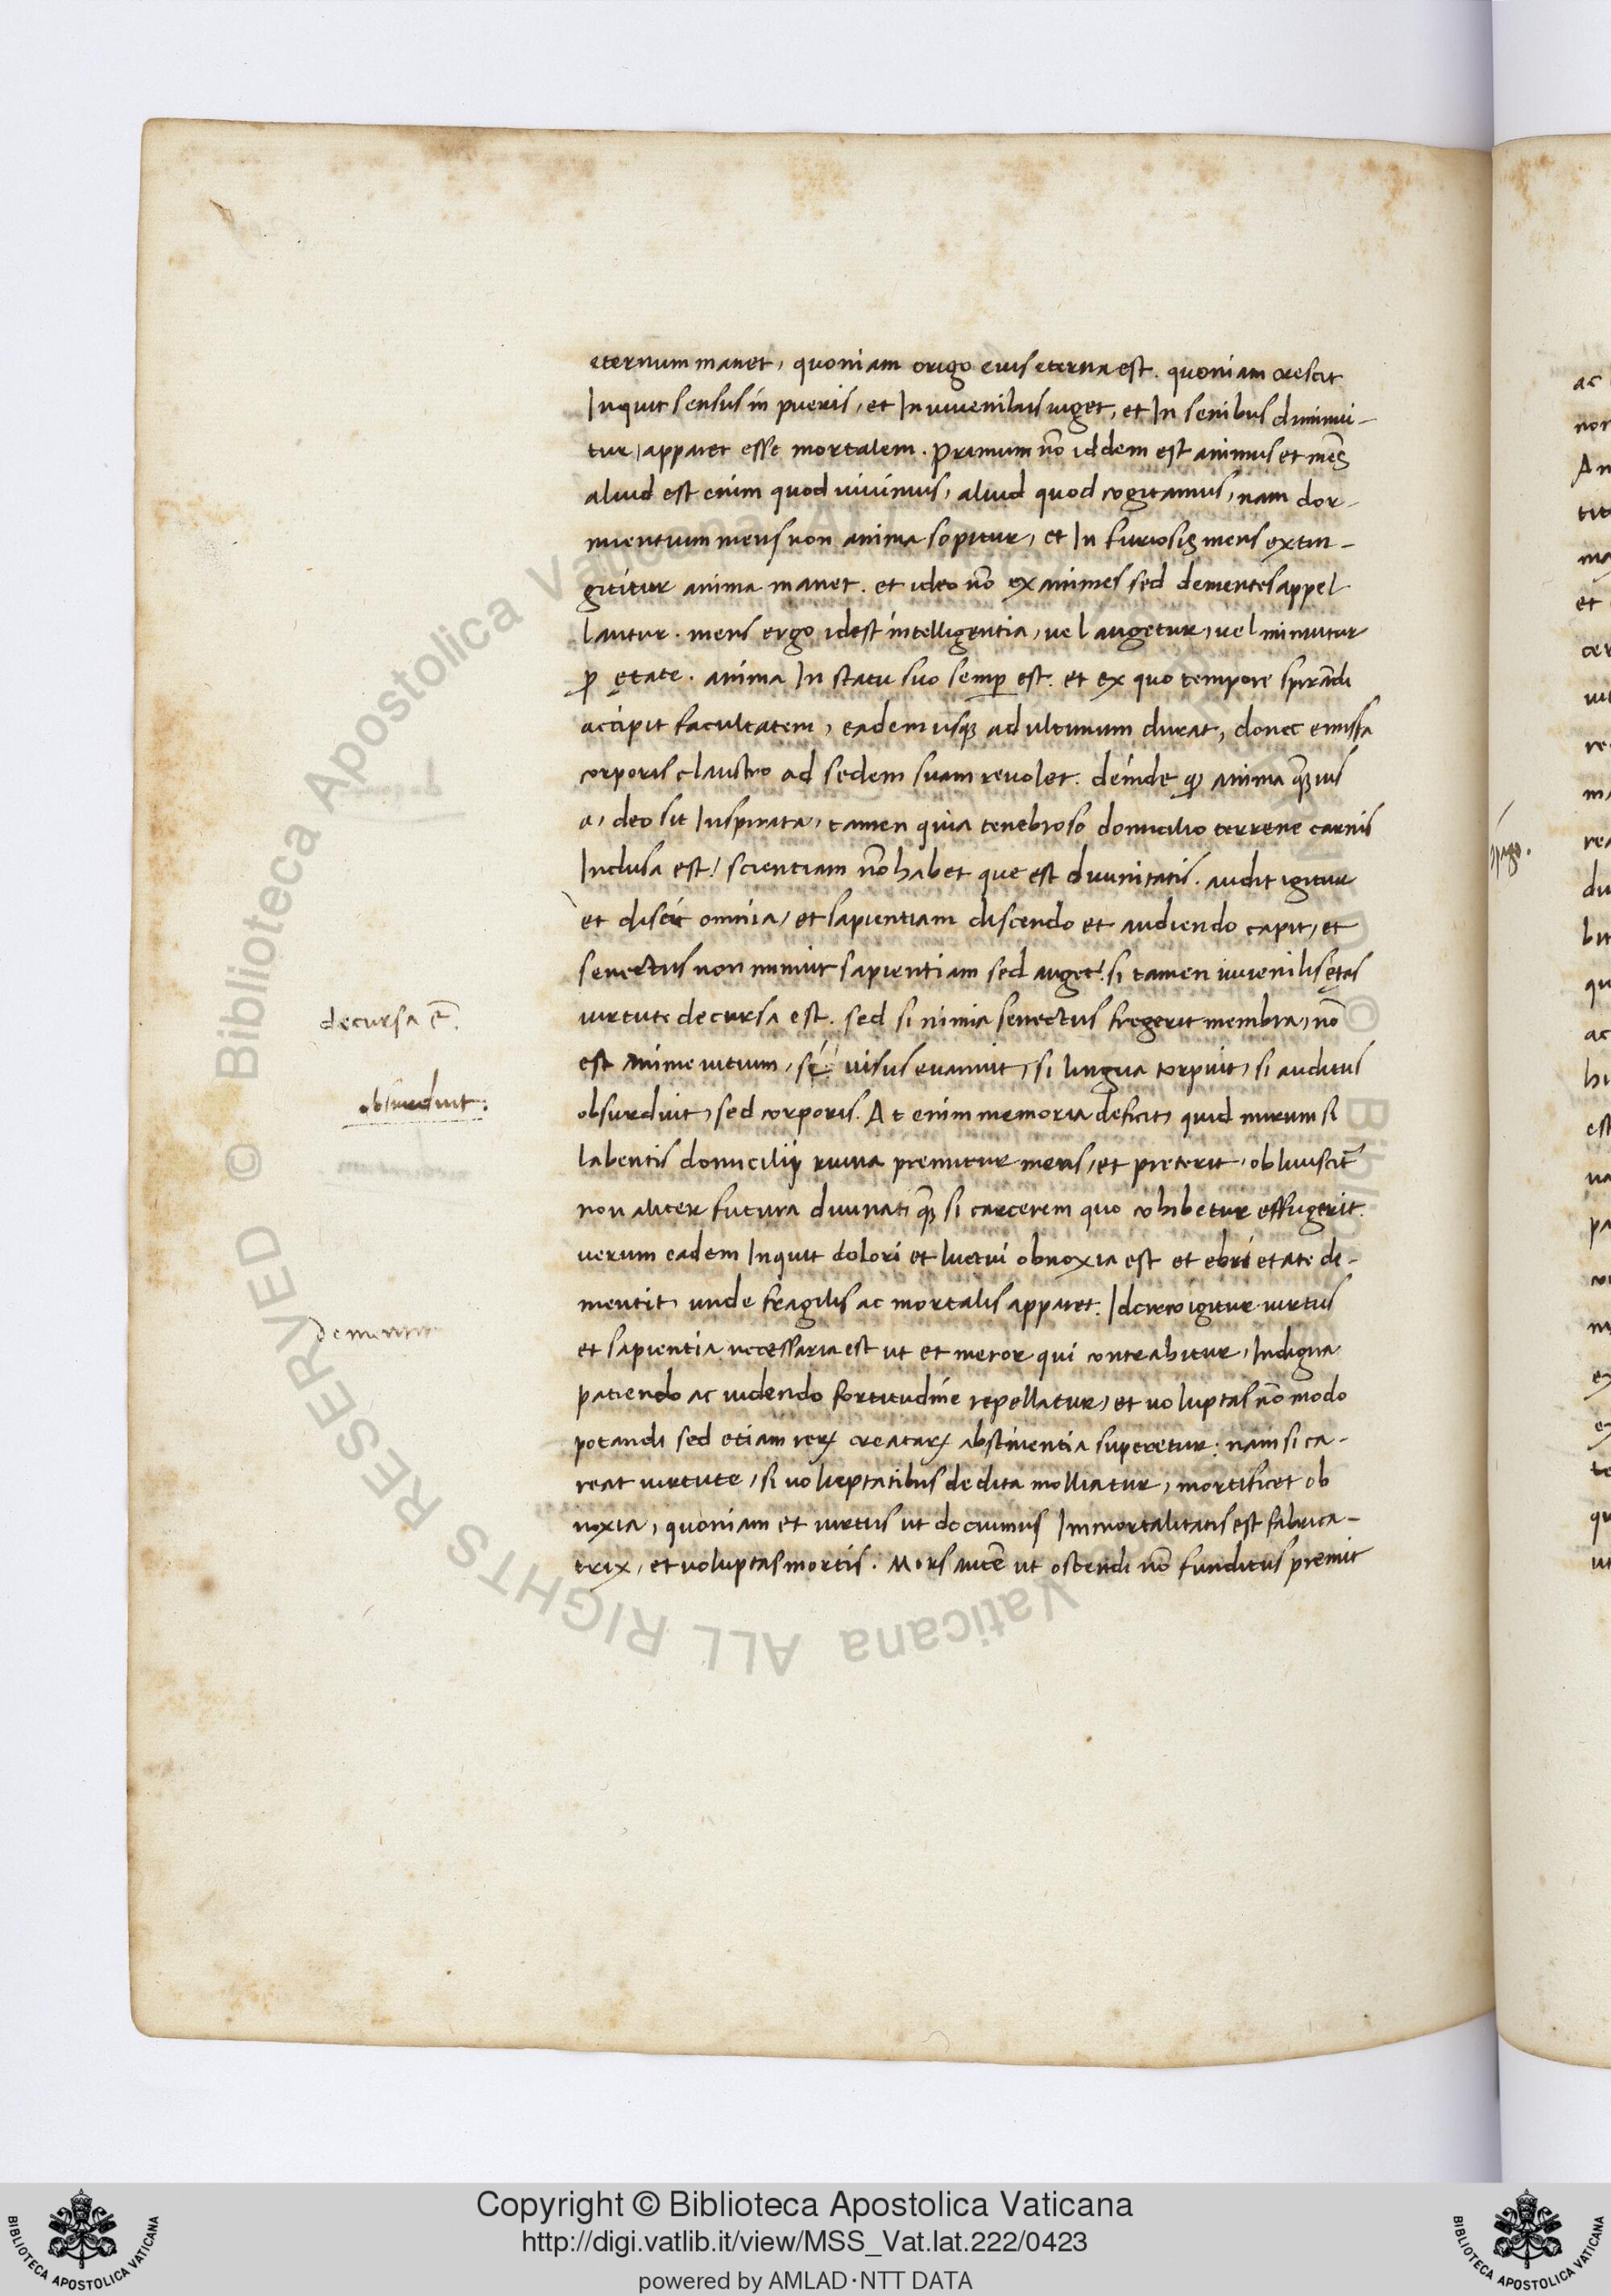 eternum manet, quoniam origo eius eterna est. quoniam crescit
Inquit sensus in pueris, et In iuvenibus viget, et In senibus diminui-
tur, apparet esse mortalem. Primum nõ iddem est animus et mẽs
aliud est enim quod vivimus, aliud quod cogitamus, nam dor-
mientium mens non anima sopitur, et In furiosis mens extin-
gitur anima manet. et ideo nõ exanimes sed dementes appel
lantur. mens ergo idest intelligentia, vel augetur, vel minuitur
ꝓ ętate. anima In statu suo semꝑ est. et ex quo tempore spirãdi
accipit facultatem, eadem usqꝫ ad ultimum durat, donec emissa
corporis claustro ad sedem suam revolet. deinde ꝙ anima quãvis
a, deo sit Inspirata, tamen quia tenebroso domicilio terrene carnis
Inclusa est! scientiam nõ habet que est divinitatis. audit igitur
et discit omnia, et sapientiam discendo et audiendo capit, et
senectus non minuit sapientiam sed auget! si tamen iuvenilis ętas
virtute decursa est. sed si nimia senectus fregerit membra, nõ
est anime vitium, si visus evanuit, si lingua torpuit, si auditus
obsurduit, sed corporis. At enim memoria deficit, quid mirum si
labentis domicilij ruina premitur mens, et preterit, obliviscit̃
non aliter futura divinati qꝫ si carcerem quo cohibetur effugerit.
verum eadem Inquit dolori et luctui obnoxia est et ebrietate de-
mentit, unde fragilis ac mortalis apparet. Idcirco igitur virtus
et sapientia necessaria est ut et meror qui contrahitur, Indigna
patiendo ac videndo fortitudine repellatur, et voluptas nõ modo
potandi sed etiam reꝝ creataꝝ abstinentia superetur: nam si ca-
reat virtute, si voluptatibus dedita molliatur, mortificet ob
noxia, quoniam et virtus ut docuimus Immortalitatis est fabrica-
trix, et voluptas mortis. Mors autẽ ut ostendi nõ funditus premit
decursa ẽ.
obsurduit:
Copyright © Biblioteca Apostolica Vaticana
http://digi.vatlib.it/view/MSS_Vat.lat.222/0423
powered by AMLAD·NTT DATA
BIBLIOTECA APOSTOLICA VATICANA
BIBLIOTECA APOSTOLICA VATICANA
© Biblioteca Apostolica Vaticana ALL RIGHTS RESERVED
© Biblioteca Apostolica Vaticana ALL RIGHTS RESERVED